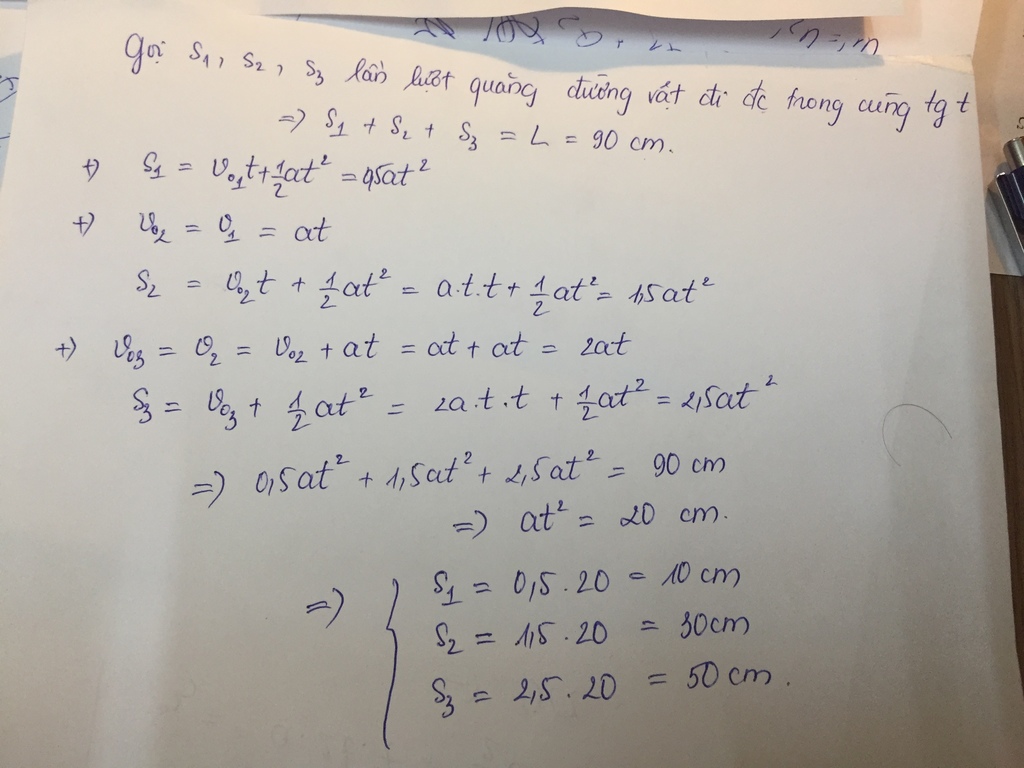 Gọi S₁, S₂, S₃ lần lượt quãng đường vật đi đc trong cùng tg t
=> S₁ + S₂ + S₃ = L = 90 cm.
+) S₁ = v₀₁t + ½at² = 0,5at²
+) v₀₂ = v₁ = at
S₂ = v₀₂t + ½at² = a.t.t + ½at² = 1,5at²
+) v₀₃ = v₂ = v₀₂ + at = at + at = 2at
S₃ = v₀₃ + ½at² = 2a.t.t + ½at² = 2,5at²
=> 0,5at² + 1,5at² + 2,5at² = 90 cm
=> at² = 20 cm.
=> { S₁ = 0,5 . 20 = 10 cm
S₂ = 1,5 . 20 = 30cm
S₃ = 2,5 . 20 = 50 cm.